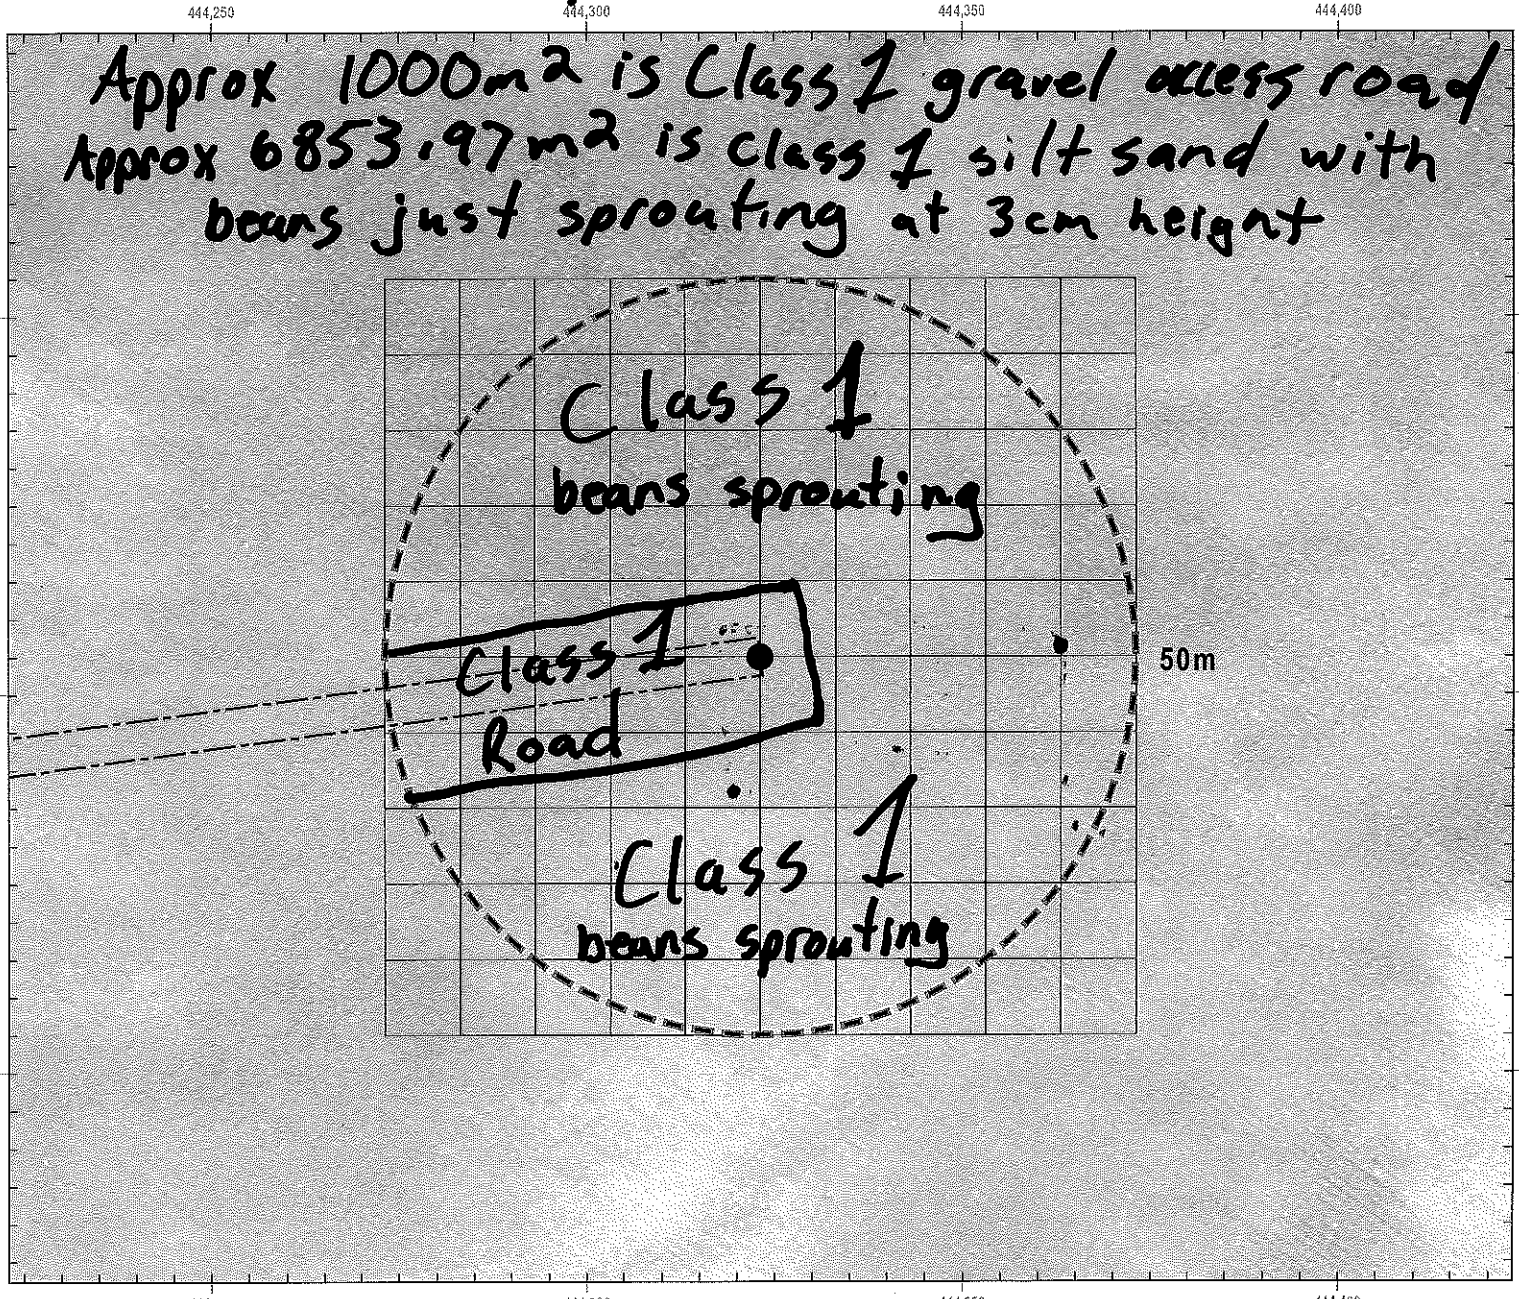 444,250 444,300 444,350 444,400
Approx 1000m2 is Class 1 gravel access road
Approx 6853.97m2 is class 1 silt sand with
beans just sprouting at 3cm height
Class 1
beans sprouting
Class 1
50m
Road
Class 1
beans sprouting